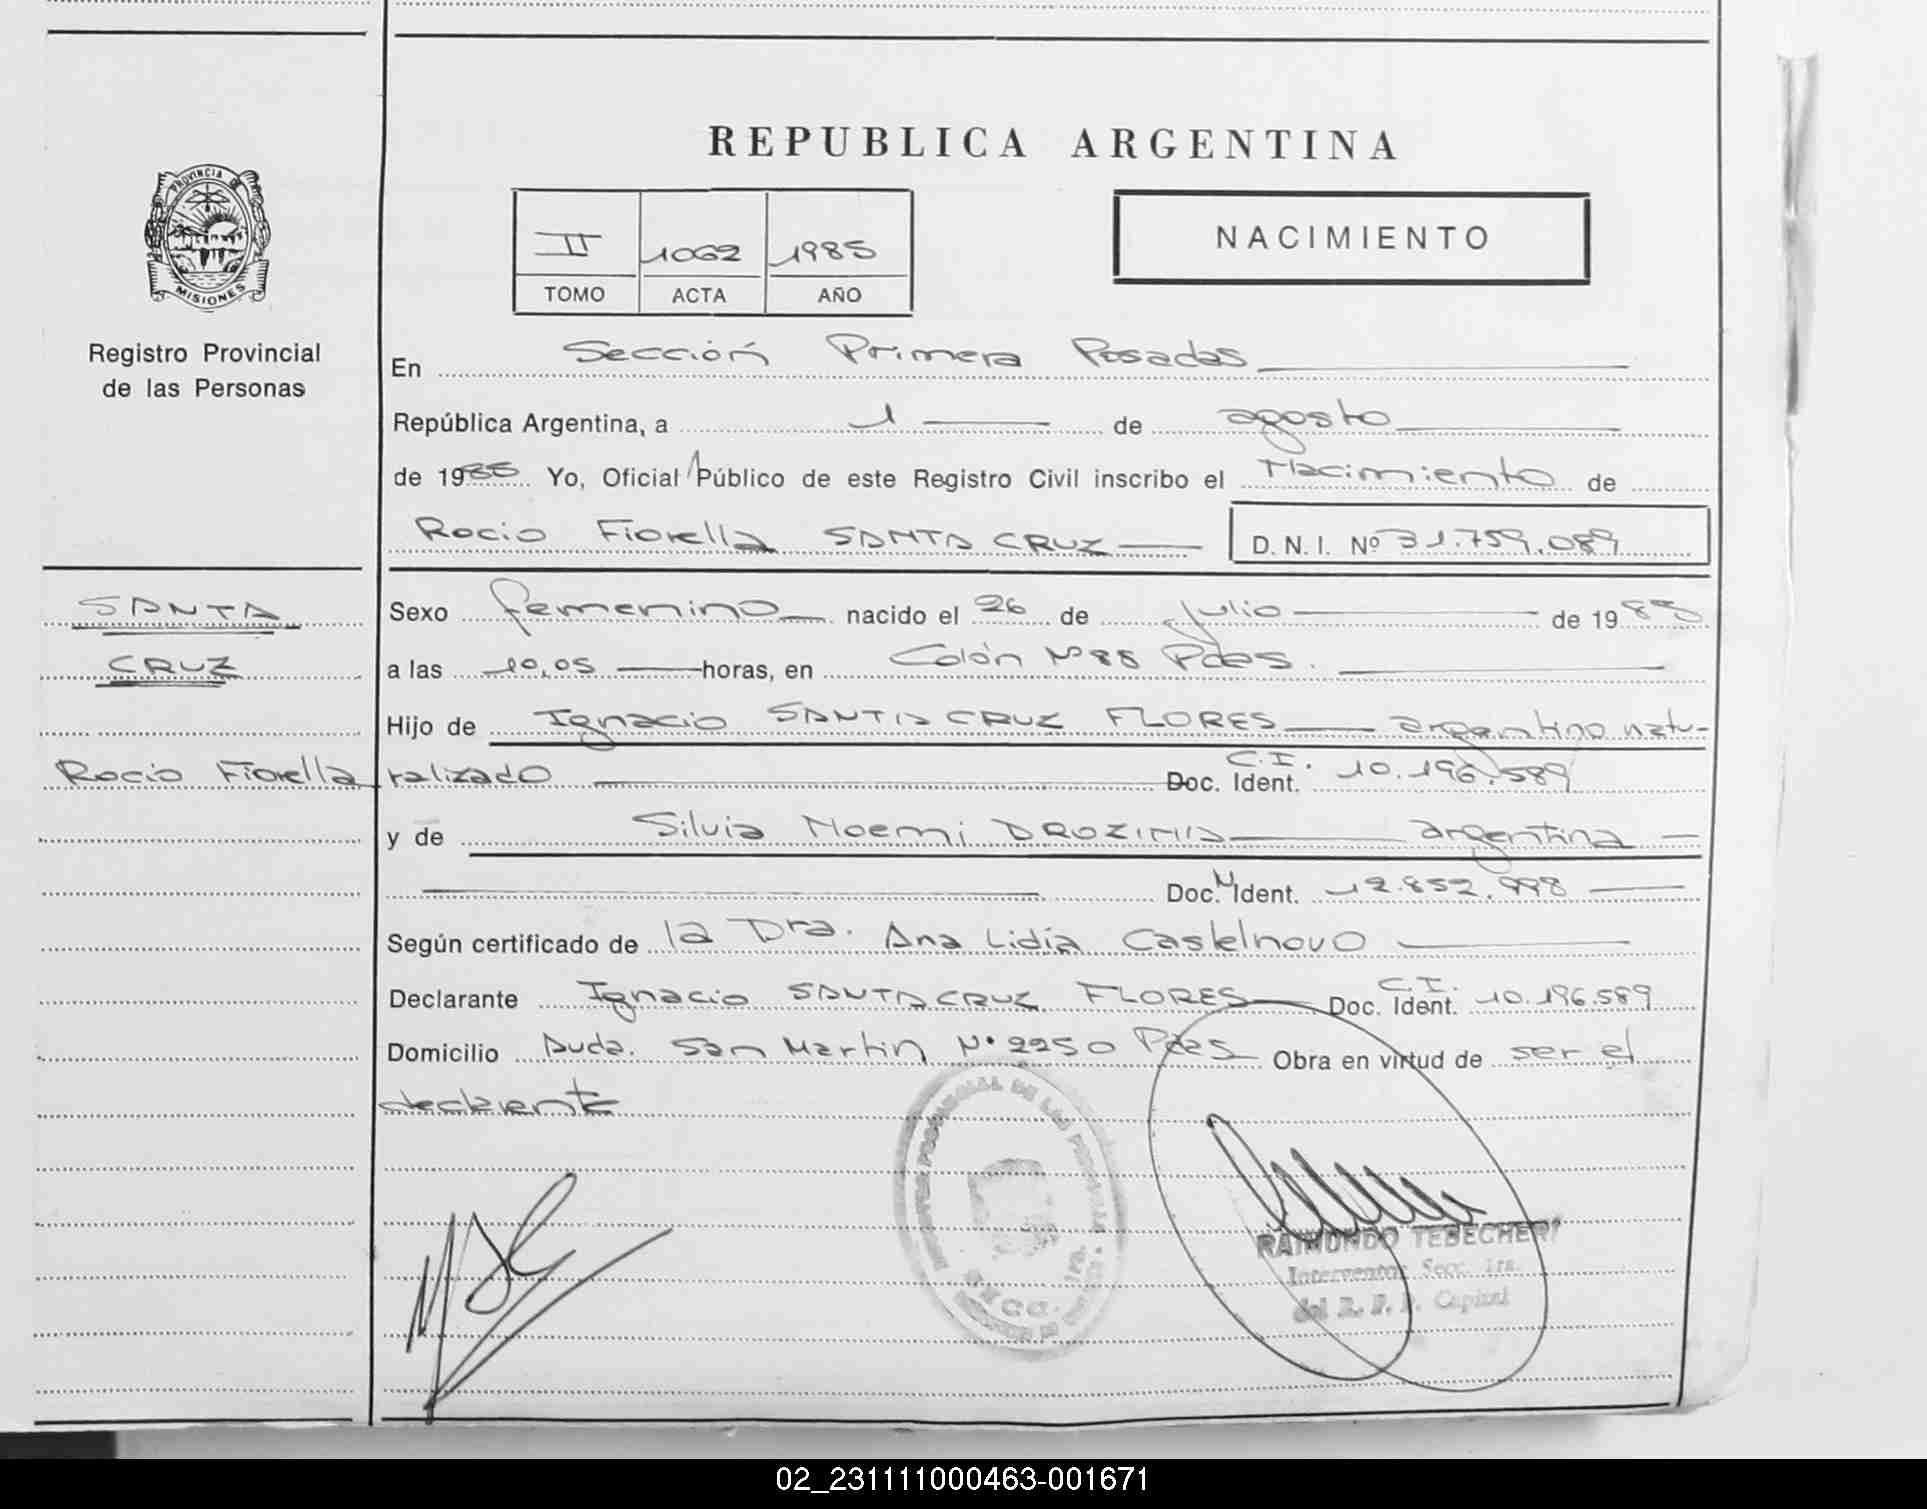 REPUBLICA ARGENTINA
PROVINCIA DE
MISIONES
Registro Provincial
de las Personas
II 1062 1985
TOMO ACTA AÑO
NACIMIENTO
En Sección Primera Posadas
República Argentina, a 1 de agosto
de 1985 Yo, Oficial Público de este Registro Civil inscribo el Nacimiento de
Rocio Fiorella SANTA CRUZ D. N. I. Nº 31.759.089
SANTA
CRUZ
Rocio Fiorella
Sexo femenino nacido el 26 de julio de 1985
a las 10,05 horas, en Colón Nº 88 Pdas.
Hijo de Ignacio SANTA CRUZ FLORES argentino natu-
ralizado C.I. Doc. Ident. 10.196.589
y de Silvia Noemi argentina
Doc. N Ident. 12.852.998
Según certificado de la Dra. Ana Lidia Castelnovo
Declarante Ignacio SANTA CRUZ FLORES C.I. Doc. Ident. 10.196.589
Domicilio Avda. San Martin Nº 2250 Pdas Obra en virtud de ser el
declarante
RAIMUNDO TEBECHERI
Interventor Secc. 1ra.
del R. P. P. Capital
02_231111000463-001671